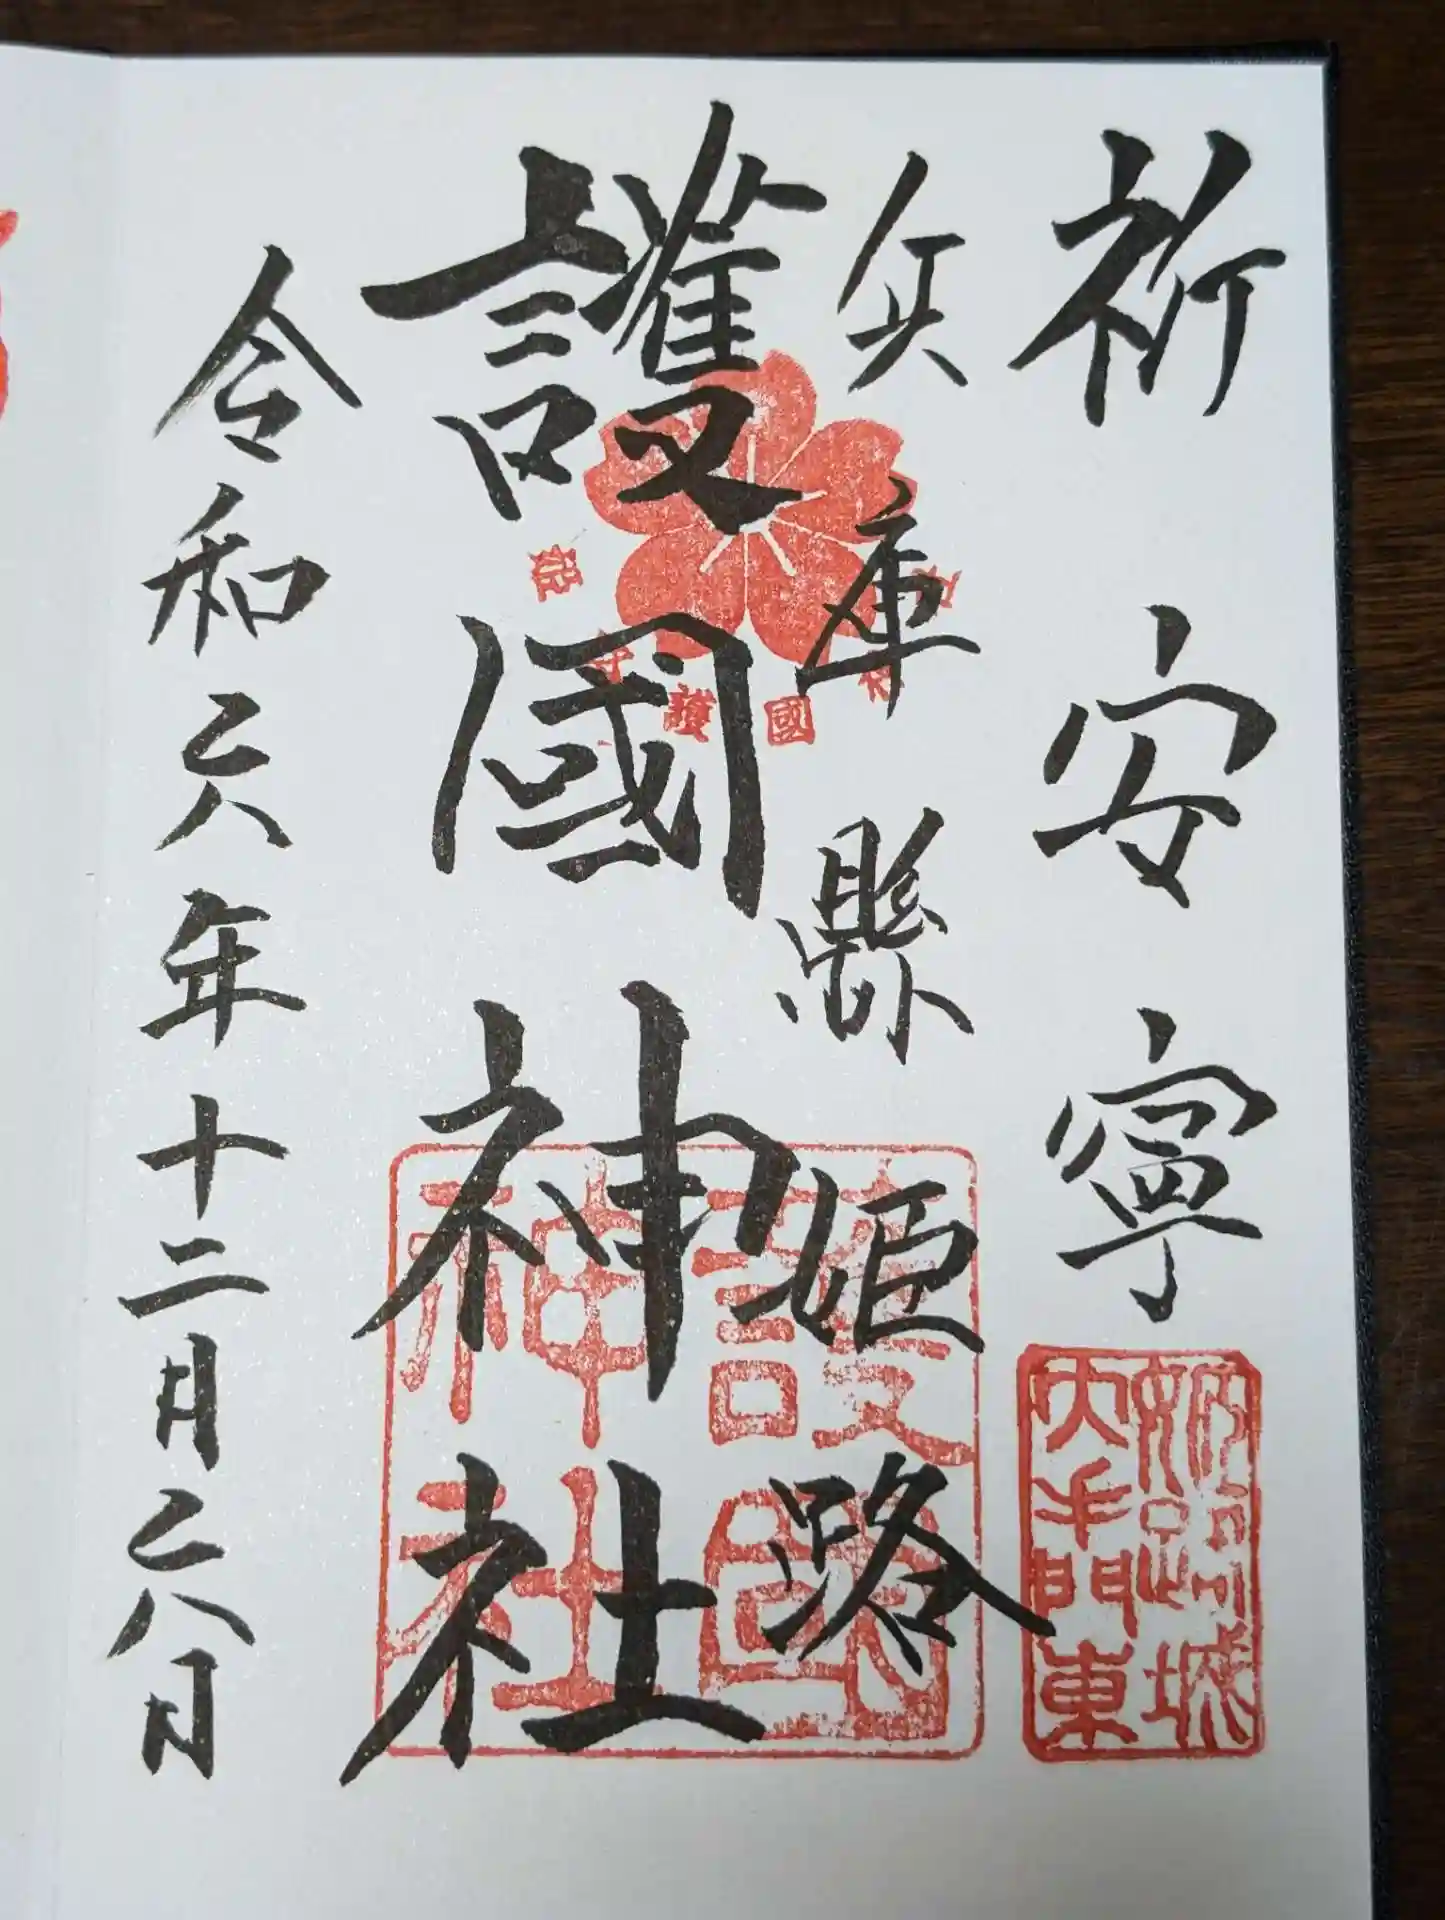 祈安寧
兵庫縣姫路
護國神社
令和六年十二月六日
護國神社
姫路城
大手門東